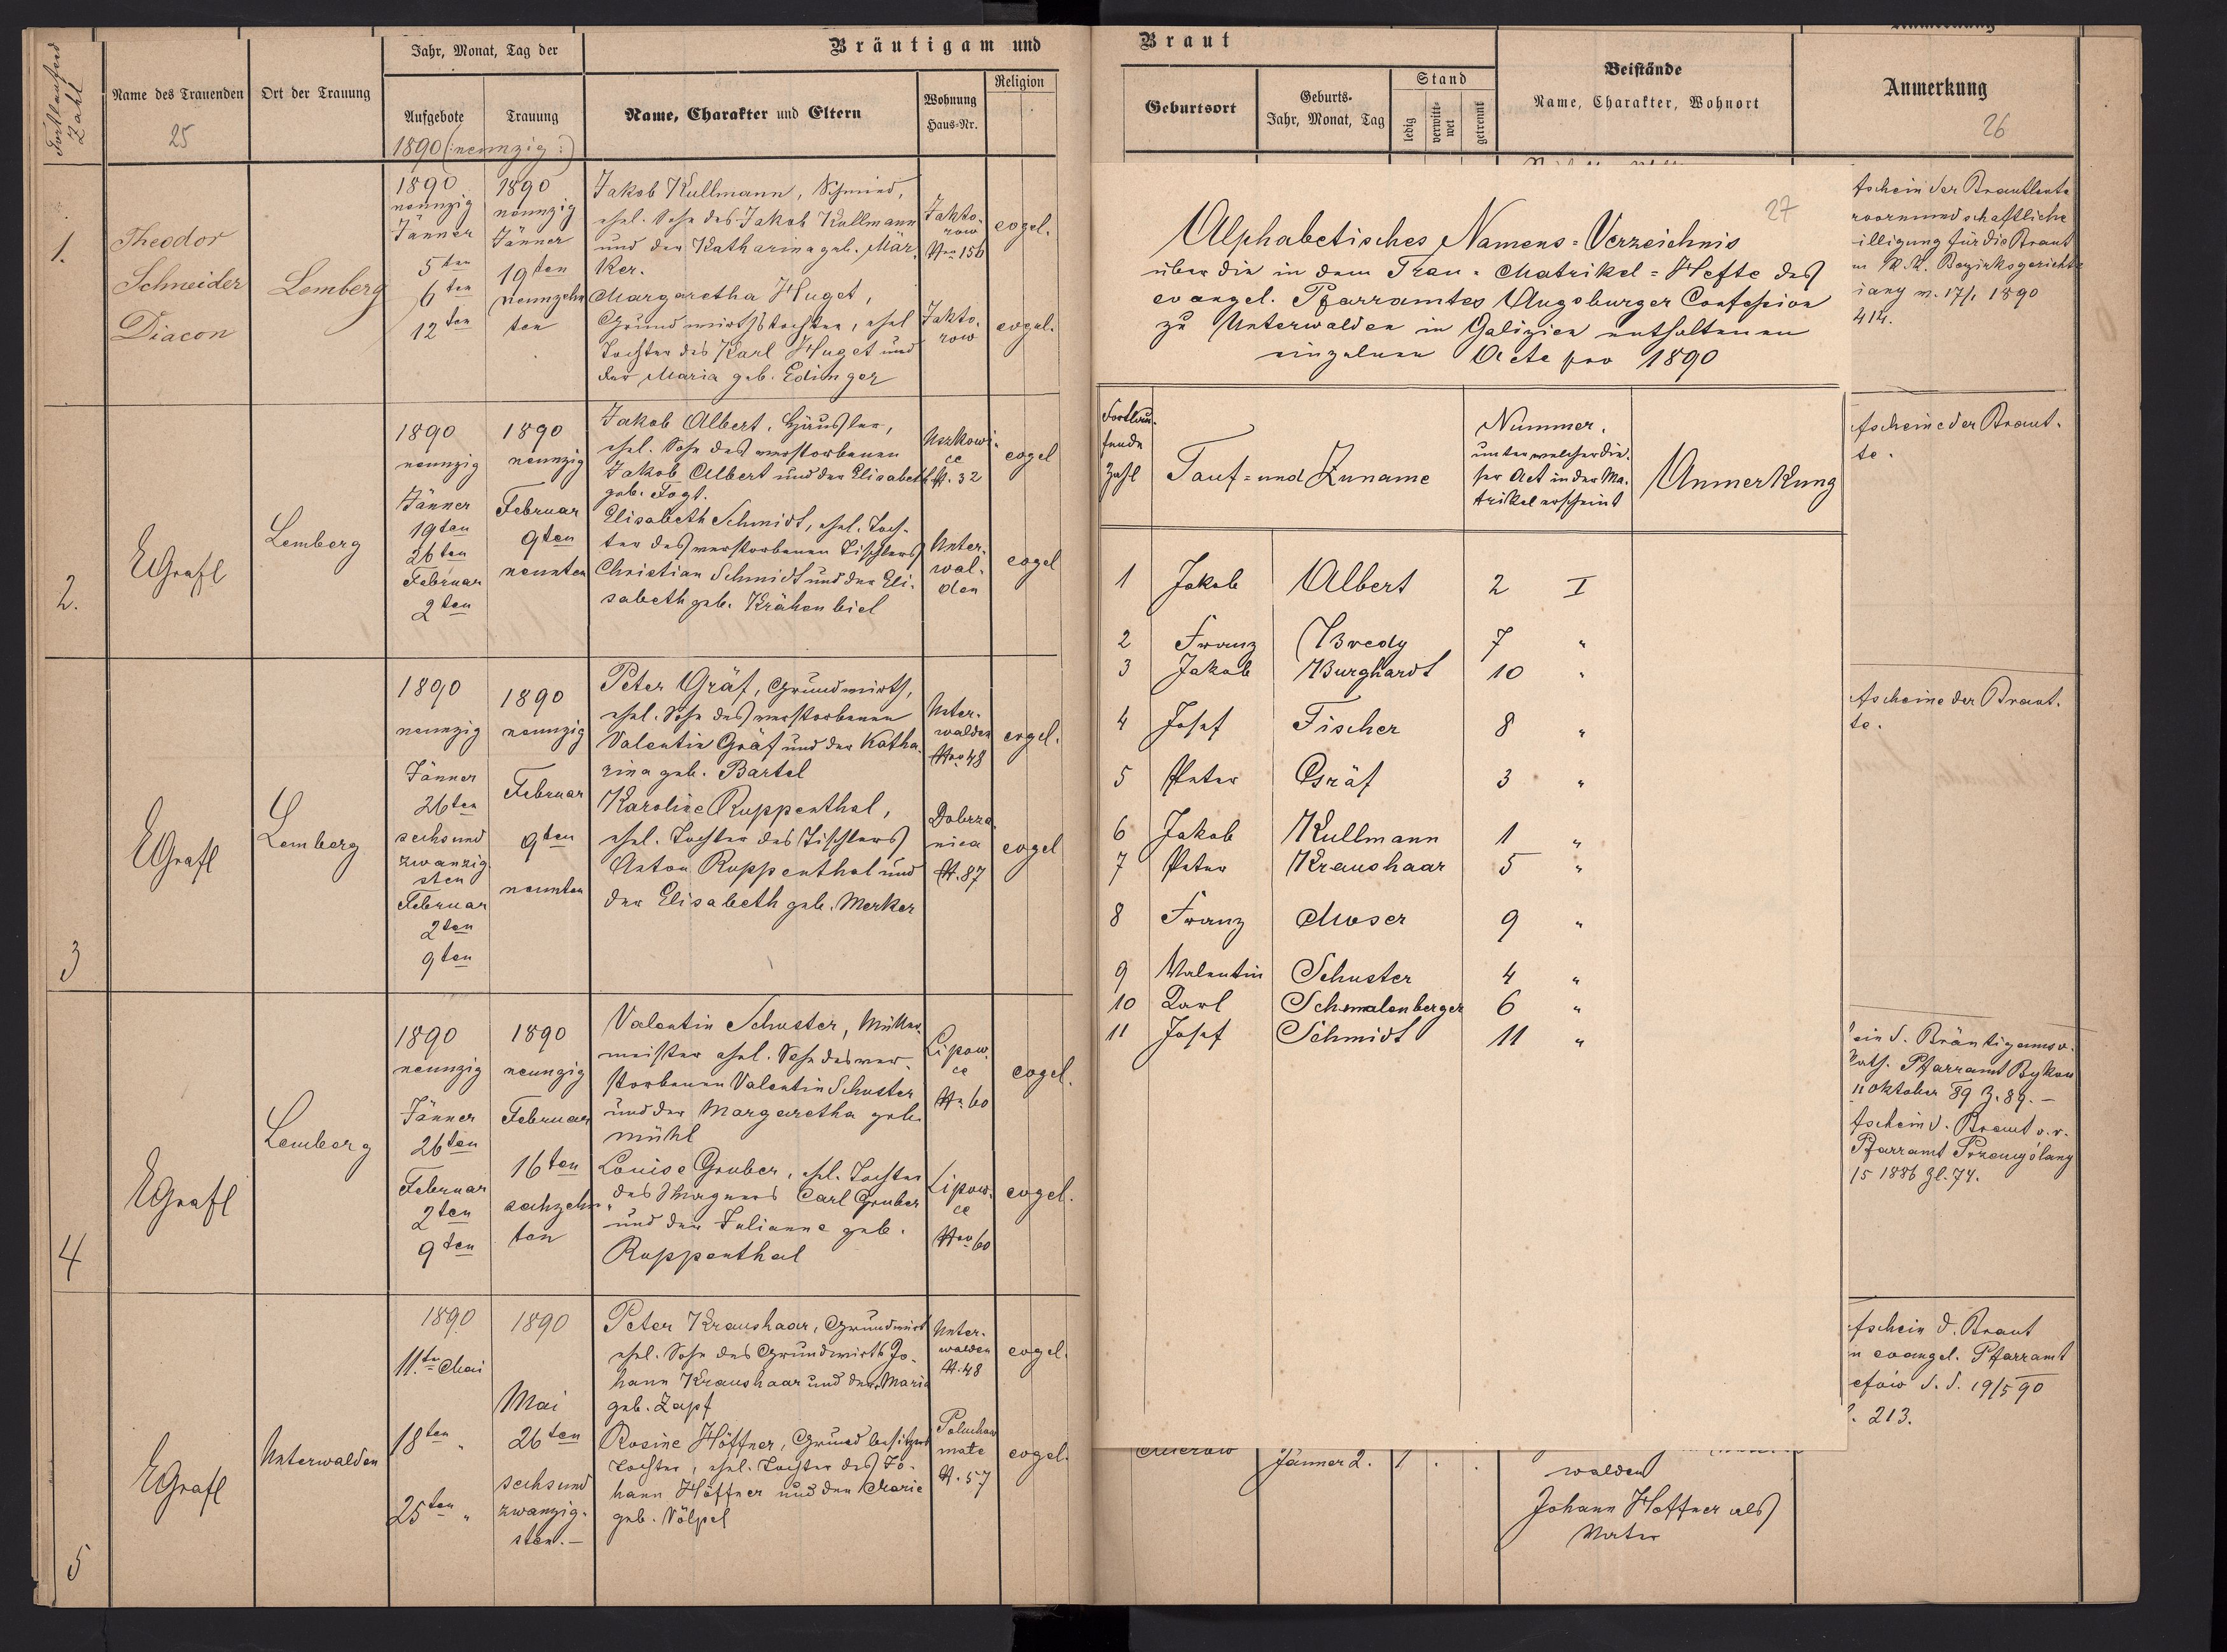 Fortlaufend
Zahl
Name des Trauenden
25
Ort der Trauung
Jahr, Monat, Tag der
Aufgebote
Trauung
1890 (: neunzig :)
Bräutigam und
Name, Charakter und Eltern
Wohnung
Haus-Nr.
Religion
1.
Theodor
Schneider
Diacon
Lemberg
1890
neunzig
Jänner
5ten
6ten
12ten
1890
neunzig
Jänner
19ten
neunzehn
ten
Jakob Kullmann, Schmied,
ehel. Sohn des Jakob Kullmann
und der Katharina geb. Mär-
ker.
Margaretha Huget,
Grundwirthstochter, ehel
Tochter des Karl Huget und
der Maria geb. Edinger
Jakto-
row
Nro 156
Jakto-
row
evgel.
evgel.
2.
EGrafl
Lemberg
1890
neunzig
Jänner
19ten
26ten
Februar
2ten
1890
neunzig
Februar
9ten
neunten
Jakob Albert, Häusler,
ehel. Sohn des verstorbenen
Jakob Albert und der Elisabeth
geb. Fogt.
Elisabeth Schmidt, ehel. Toch-
ter des verstorbenen Tischlers
Christian Schmidt und der Eli-
sabeth geb. Krähenbiel
Uszkowi-
ce
N. 32
Unter-
wal-
den
evgel
evgel
3
EGrafl
Lemberg
1890
neunzig
Jänner
26ten
sechsund
zwanzig-
sten
Februar
2ten
9ten
1890
neunzig
Februar
9ten
neunten
Peter Gräf, Grundwirth,
ehel. Sohn des verstorbenen
Valentin Gräf und der Katha-
rina geb. Bartel
Karoline Ruppenthal,
ehel. Tochter des Tischlers
Anton Ruppenthal und
der Elisabeth geb. Merker
Unter-
walden
Nro 48
Dobrza-
nica
N. 87
evgel.
evgel
4
EGrafl
Lemberg
1890
neunzig
Jänner
26ten
Februar
2ten
9ten
1890
neunzig
Februar
16ten
sechzehn-
ten
Valentin Schuster, Müller-
meister ehel. Sohn des ver-
storbenen Valentin Schuster
und der Margaretha geb.
Mühl
Louise Gruber, ehel. Tochter
des Wagners Carl Gruber
und der Julianne geb.
Ruppenthal
Lipow-
ce
Nr. 60
Lipow-
ce
Nro 60
evgel.
evgel.
5
EGrafl
Unterwalden
1890
11.te Mai
18ten "
25ten "
1890
Mai
26ten
sechsund
zwanzig-
sten.—
Peter Kraushaar, Grundwirt
ehel. Sohn des Grundwirths Jo-
hann Kraushaar und der Maria
geb. Zapf
Rosine Höffner, Grundbesitzers
Tochter, ehel. Tochter des Jo-
hann Höffner und der Marie
geb. Völpel
Unter-
walden
N. 48
Poluchow
mate
N. 57
evgel.
evgel.
Braut
Geburtsort
Geburts-
Jahr, Monat, Tag
Stand
ledig
verwitt-
wet
getrennt
Beistände
Name, Charakter, Wohnort
Anmerkung
26
27
Alphabetisches Namens-Verzeichnis
über die in dem Trau-Matrikel-Hefte des
evangel. Pfarramtes Augsburger Confession
zu Unterwalden in Galizien enthaltenen
einzelnen Acte pro 1890
Fortlau-
fende
Zahl
Tauf- und Zuname
Nummer,
unter welcher die-
ser Act in der Ma-
trikel erscheint
Anmerkung
1 Jakob Albert 2 I
2 Franz Bredy 7 "
3 Jakob Burghardt 10 "
4 Josef Fischer 8 "
5 Peter Gräf 3 "
6 Jakob Kullmann 1 "
7 Peter Kraushaar 5 "
8 Franz Moser 9 "
9 Valentin Schuster 4 "
10 Karl Schmalenberger 6 "
11 Josef Schmidt 11 "
fschein der Brautleute
vormundschaftliche
illigung für die Braut
m K.K. Bezirksgerichte
iany v. 17/1 1890
414.
fscheine der Braut-
te.
fscheine der Braut-
te.
ein d. Bräutigams v.
kath. Pfarramt Bykow
11 Oktober 89 Z. 89.—
fschein d. Braut v. r.
Pfarramt Przemyślany
15 1886 Zl. 74.
fschein d. Braut
n evangel. Pfarramt
efów d. d. 19/5 90
213.
Jänner 2. 1 . .
walden
Johann Höffner als
Vater